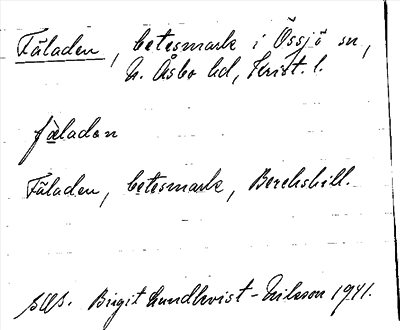 Fäladen, betesmark i Össjö sn,
N. Åsbo hd, Krist. l.
fäladen
Fäladen, betesmark,
Birgit Lundkvist-Nilsson 1941.